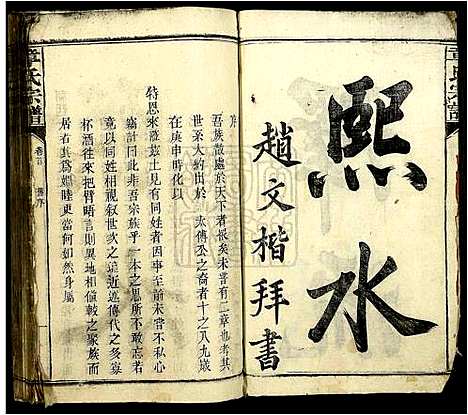 章氏宗譜
熙水
趙文楷拜書
章氏宗譜
卷首
舊序
序
吾族散處於天下者悵矣未嘗有二章也考其
世系大約出於 太傅公之裔者十之八九歲
在庚申時化以
特恩來蒞茲土見有同姓者因事至前未嘗不私心
竊計曰此非吾宗族乎一本之思不敢忘若
竟以同姓相視叙世次之遠近述傳代之多寡
杯酒往來把臂晤言則異地相値較之聚族而
居有其為婣睦更當何如然身屬